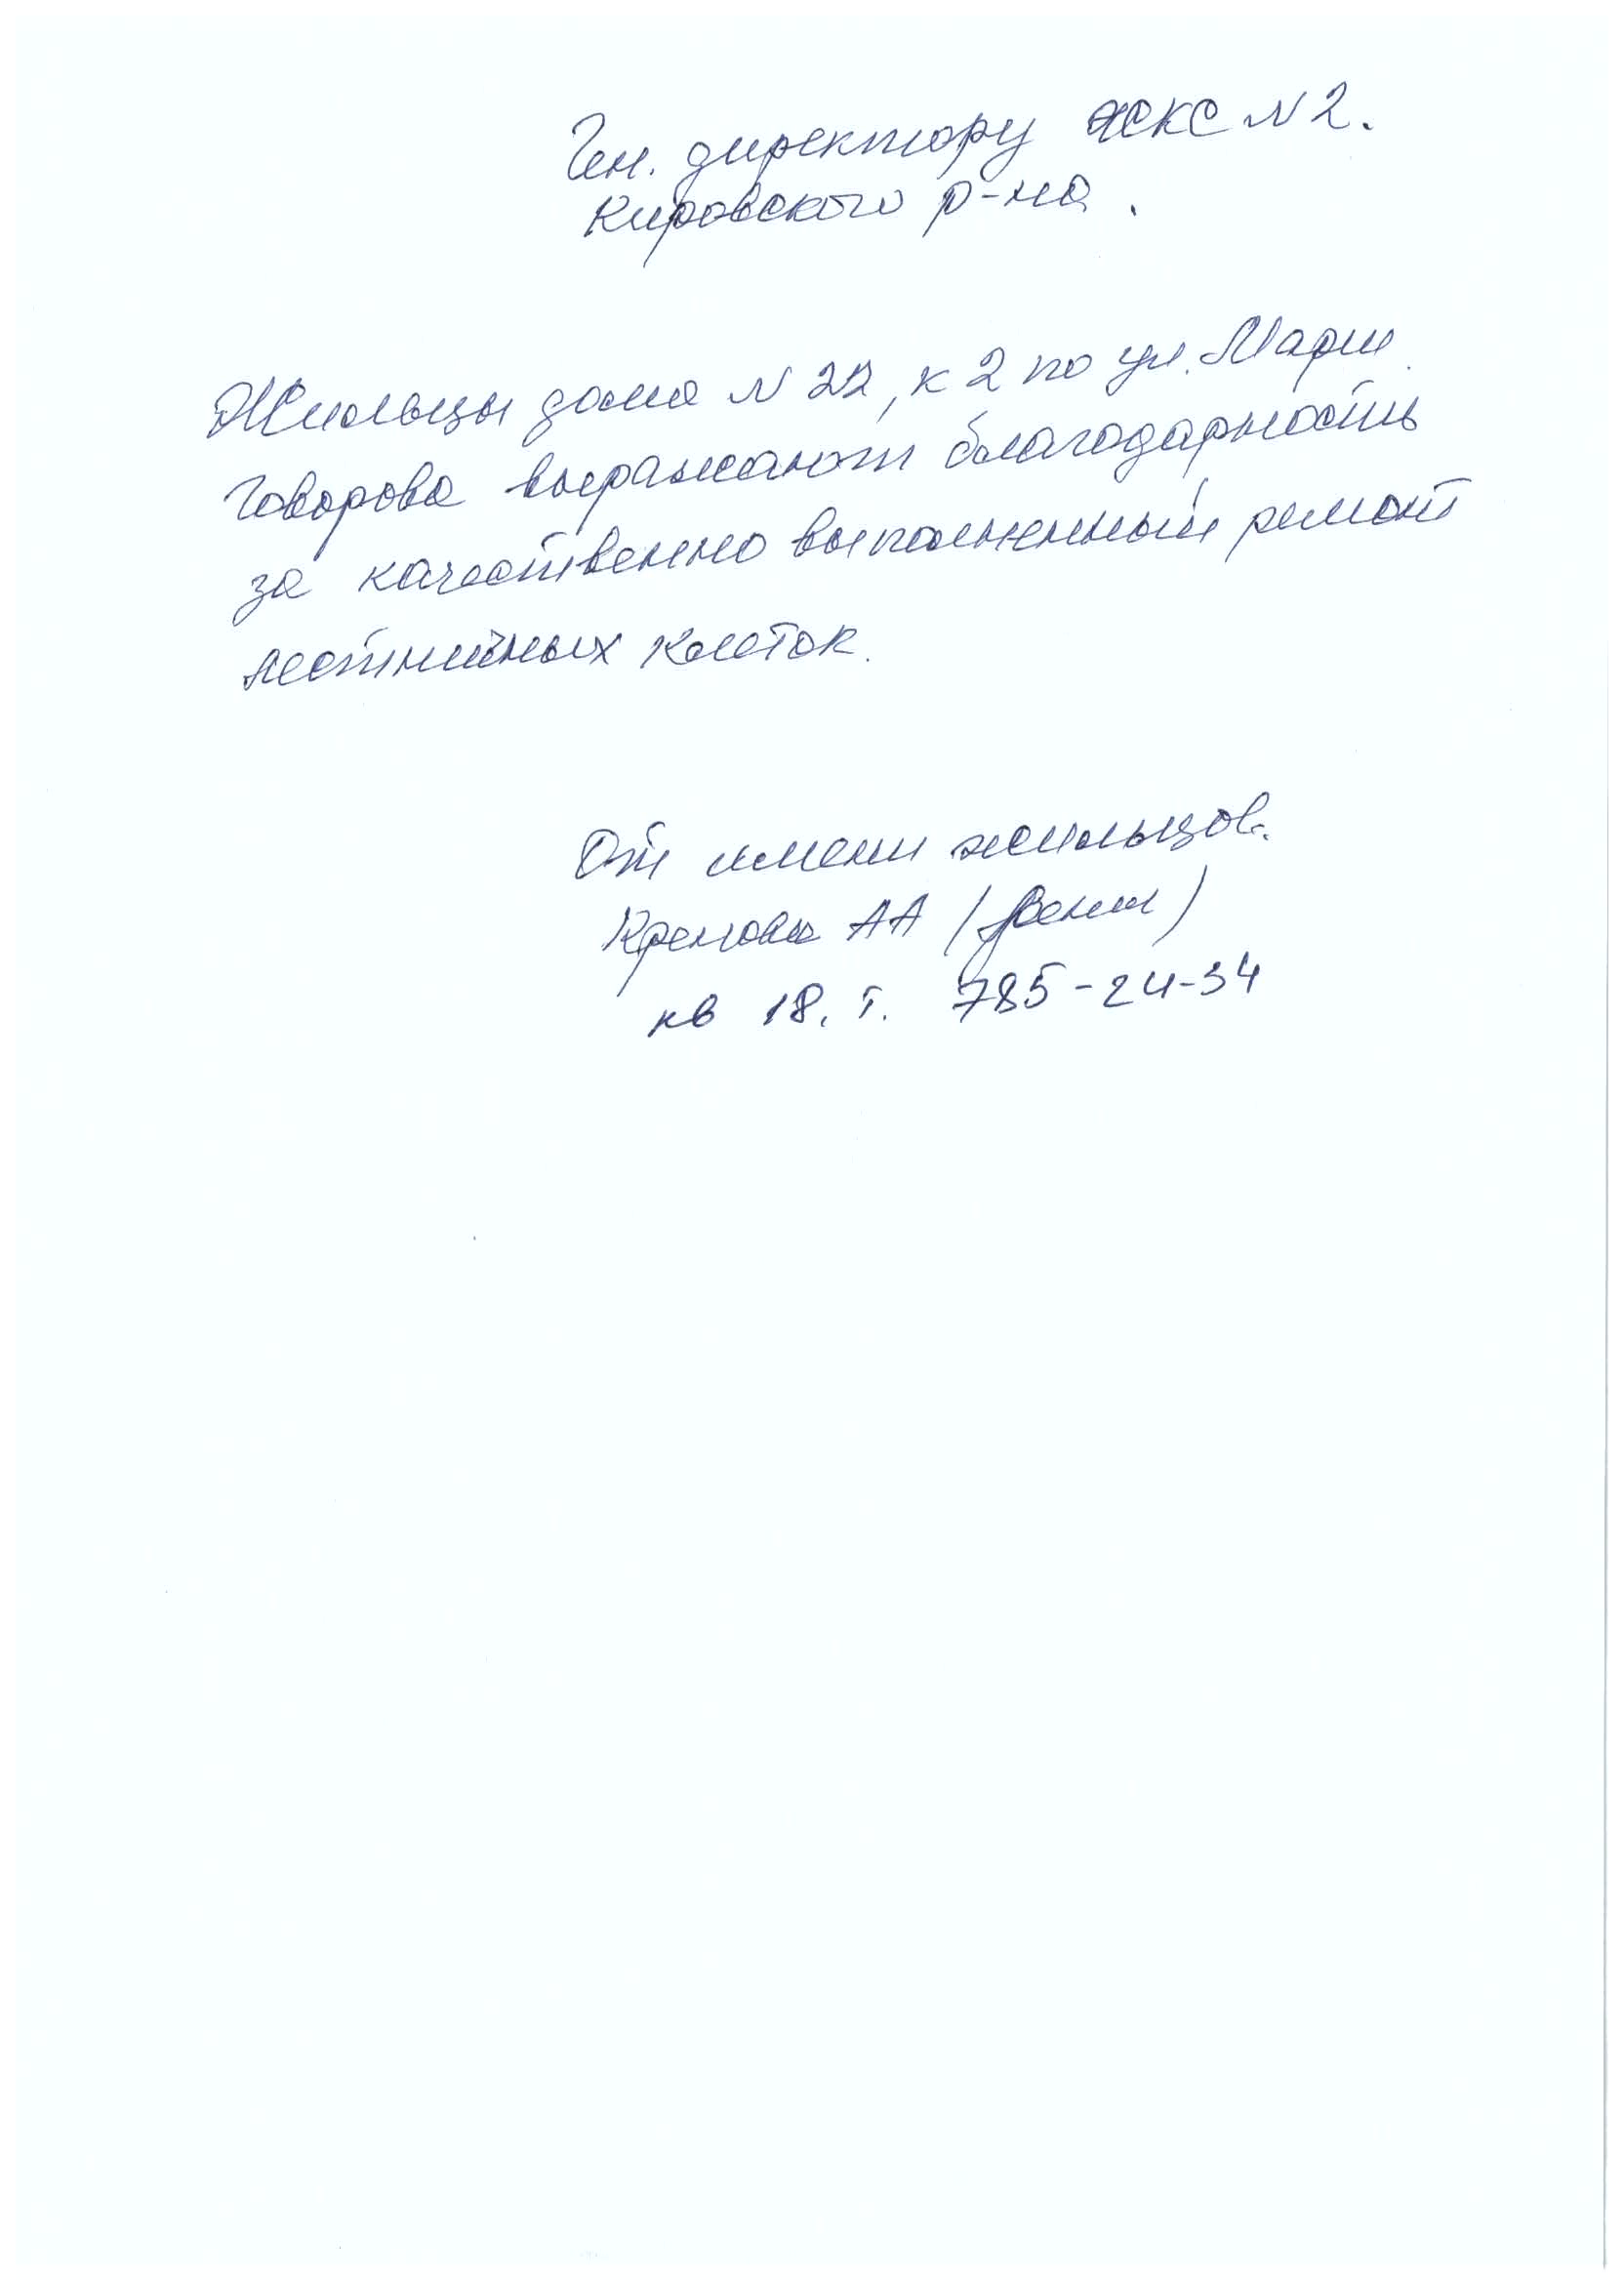 Ген. директору ЖКС N 2.
Кировского р-на.
Жильцы дома N 22, к 2 по ул. Марш.
Говорова выражают благодарность
за качественно выполненный ремонт
лестничных клеток.
От имени жильцов.
АА
кв 18. т. 785-24-34